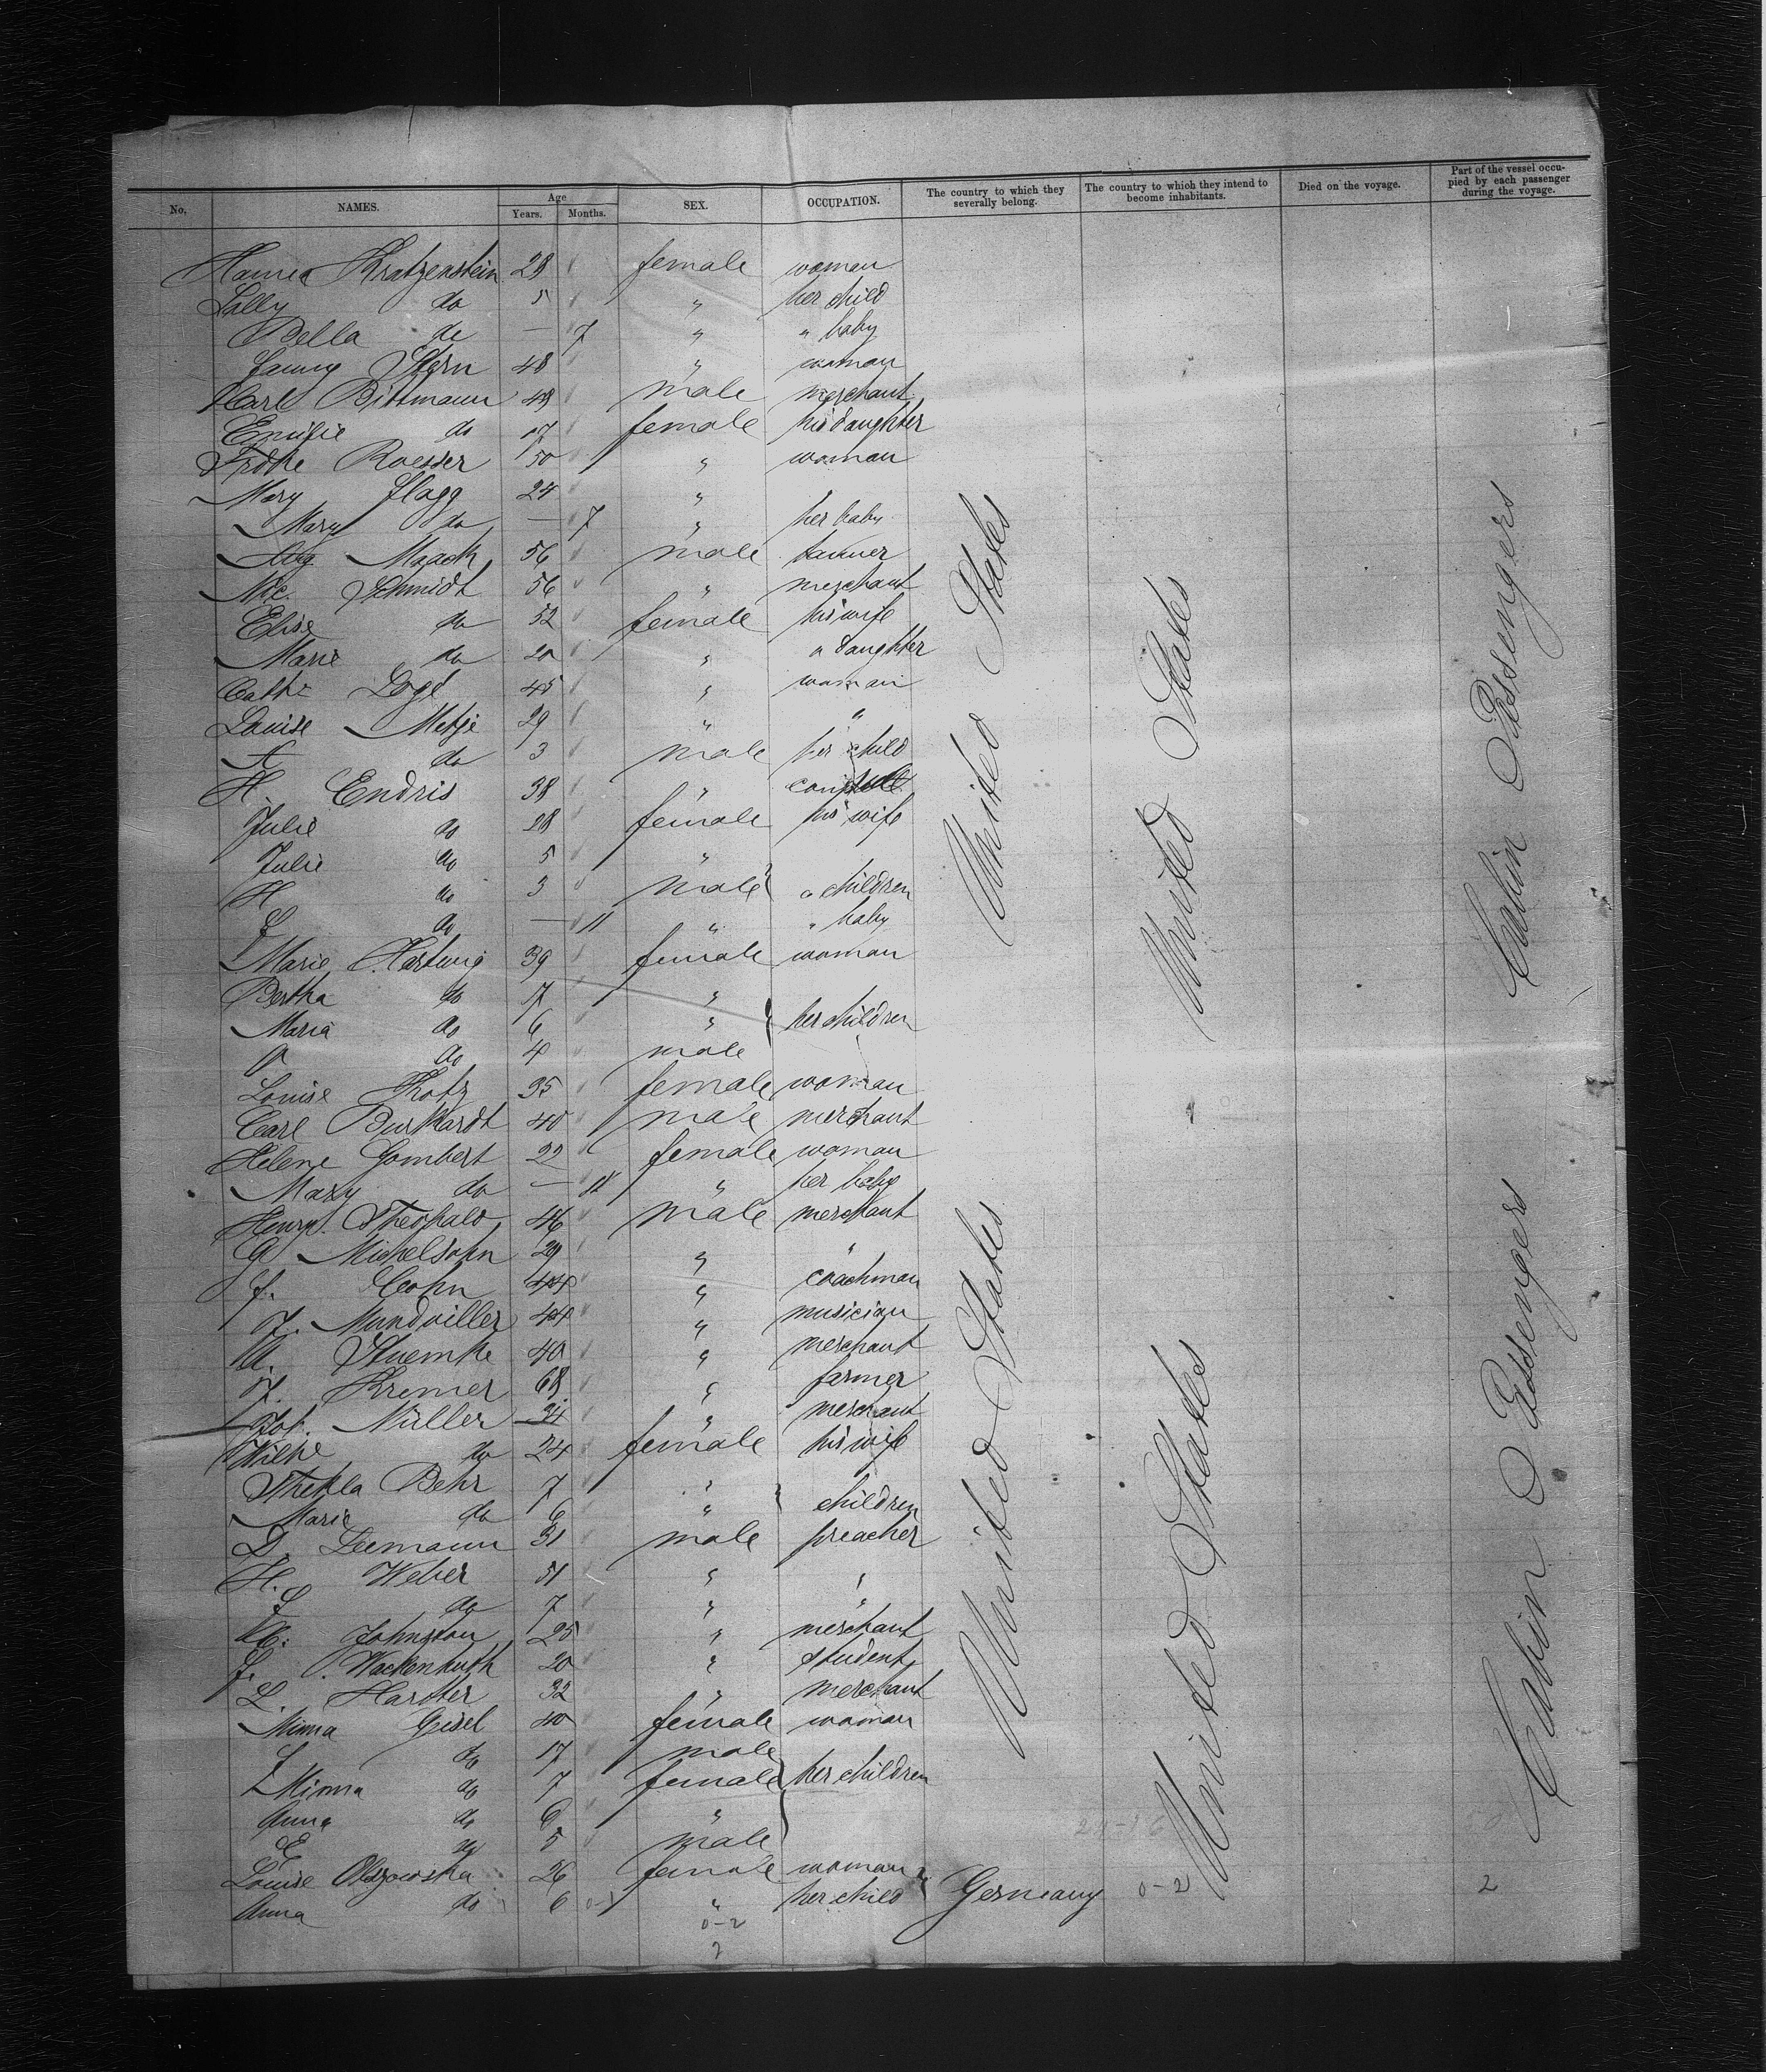 No. NAMES. Age Years. Months. SEX. OCCUPATION. The country to which they severally belong. The country to which they intend to become inhabitants. Died on the voyage. Part of the vessel occupied by each passenger during the voyage.
Kratzenstein 28 female woman
do 5 " her child
Bella do — 7 " " baby
Fanny Stern 48 " woman
Carl Bittmann 48 male merchant
Emilie do 17 female his daughter
Roesser 50 " woman
Mary Flagg 24 "
Mary do — 7 " her baby
Aug Maack 56 male
Nic. Schmidt 56 " merchant
Elise do 52 female his wife
Marie do 20 " " daughter
Cathr Logé 45 " woman
Louise Metje 29 " "
do 3 male her child
H. Endris 38 "
Julie do 28 female his wife
Julie do 5 "
H do 3 male " children
do — 11 " " baby
Marie Hartwig 39 female woman
Bertha do 17 "
Maria do 6 " her children
do 4 male
Louise Kotz 35 female woman
Carl Burkardt 40 male merchant
Helene Gombert 22 female woman
Mary do — 11 " her baby
Henry Theobald 46 male merchant
G. Michelsohn 29 " "
J. Cohn 44 " coachman
J. Mundviller 44 " musician
Stuemke 40 " merchant
Kremer 68 " farmer
Joh. Müller 34 " merchant
Wilhe do 24 female his wife
Thekla Behr 7 "
Marie do 6 " children
D. Leemann 31 male preacher
H. Weber 51 " "
do 7 " "
Johnston 25 " merchant
Wackenhuth 20 " student
L. Harster 32 " merchant
Minna Geisel 40 female woman
do 17 male
Minna do 7 female her children
Anna do 6 "
E do 5 male
Louise Olszowska 26 female woman
Anna do 6 " her child Germany 0-2 2
0-2
United States
United States
Cabin Passengers
United States
United States
Cabin Passengers